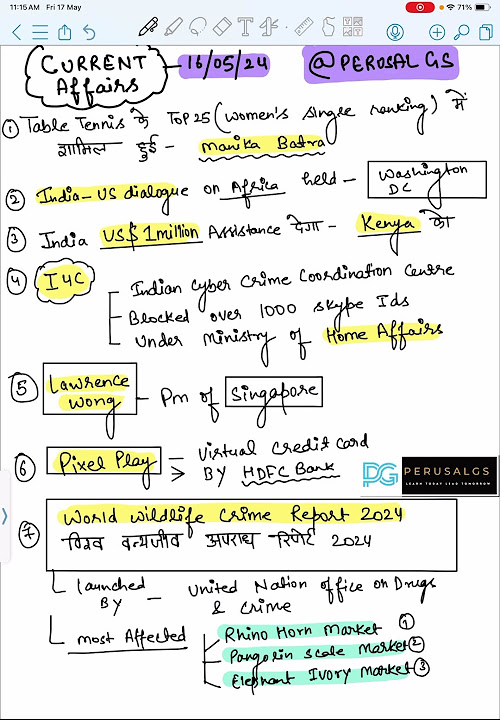 11:15 AM Fri 17 May
71%
CURRENT Affairs 16/05/24 @PERUSALGS
① Table Tennis के TOP 25 (women's single ranking) में
शामिल हुई - Manika Batra
② India-US dialogue on Africa held - Washington DC
③ India US$ 1million Assistance देगा - Kenya को
④ I4C
Indian Cyber Crime Coordination Centre
Blocked over 1000 skype Ids
Under Ministry of Home Affairs
⑤ Lawrence Wong - Pm of Singapore
⑥ Pixel Play - Virtual Credit Card
BY HDFC Bank
PG PERUSALGS
LEARN TODAY LEAD TOMORROW
⑦ World Wildlife Crime Report 2024
विश्व वन्यजीव अपराध रिपोर्ट 2024
launched BY - United Nation office on Drugs & Crime
most Affected
Rhino Horn Market ①
Pangolin Scale Market ②
Elephant Ivory Market ③